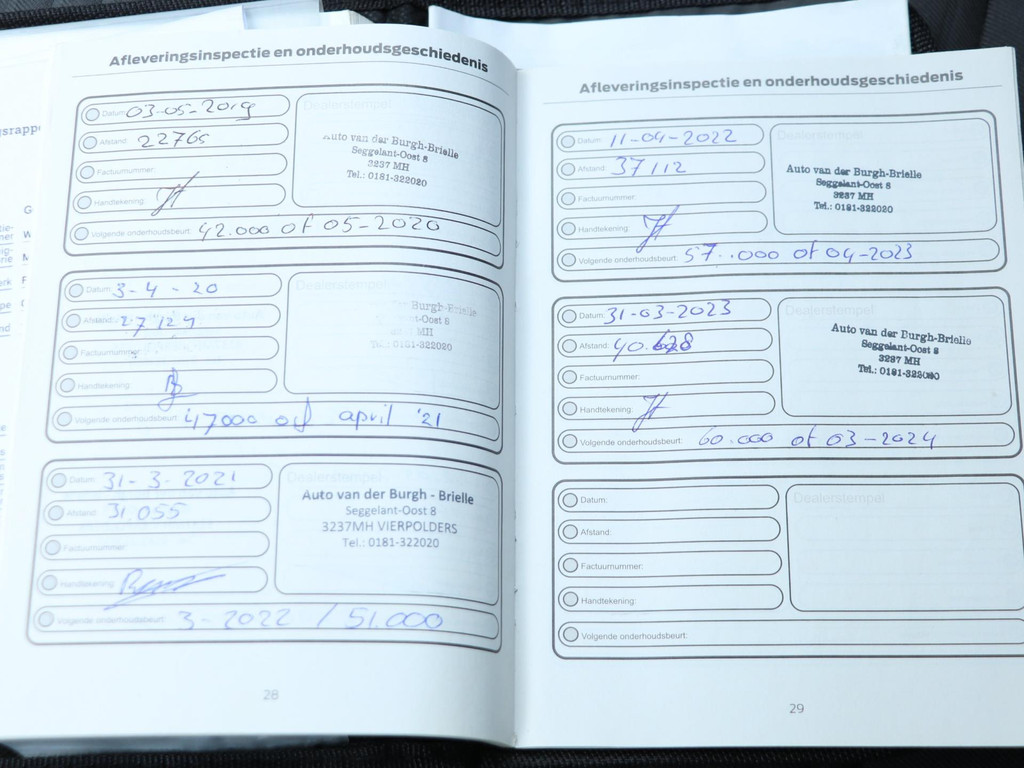 Afleveringsinspectie en onderhoudsgeschiedenis
Datum: 03-05-2019
Dealerstempel
Afstand: 22765
Auto van der Burgh-Brielle
Seggelant-Oost 8
3237 MH
Tel.: 0181-322020
Factuurnummer:
Handtekening:
Volgende onderhoudsbeurt: 42.000 of 05-2020
Datum: 3-4-20
Dealerstempel
Afstand: 27124
Burgh-Brielle
t-Oost 8
MH
: 0181-322020
Factuurnummer:
Handtekening:
Volgende onderhoudsbeurt: 47000 of april '21
Datum: 31-3-2021
Dealerstempel
Afstand: 31.055
Auto van der Burgh - Brielle
Seggelant-Oost 8
3237MH VIERPOLDERS
Tel.: 0181-322020
Factuurnummer:
Handtekening:
Volgende onderhoudsbeurt: 3-2022 / 51.000
28
Afleveringsinspectie en onderhoudsgeschiedenis
Datum: 11-04-2022
Dealerstempel
Afstand: 37112
Auto van der Burgh-Brielle
Seggelant-Oost 8
3237 MH
Tel.: 0181-322020
Factuurnummer:
Handtekening:
Volgende onderhoudsbeurt: 57.000 of 04-2023
Datum: 31-03-2023
Dealerstempel
Afstand:
Auto van der Burgh-Brielle
Seggelant-Oost 8
3237 MH
Tel.: 0181-322020
Factuurnummer:
Handtekening:
Volgende onderhoudsbeurt: 60.000 of 03-2024
Datum:
Dealerstempel
Afstand:
Factuurnummer:
Handtekening:
Volgende onderhoudsbeurt:
29